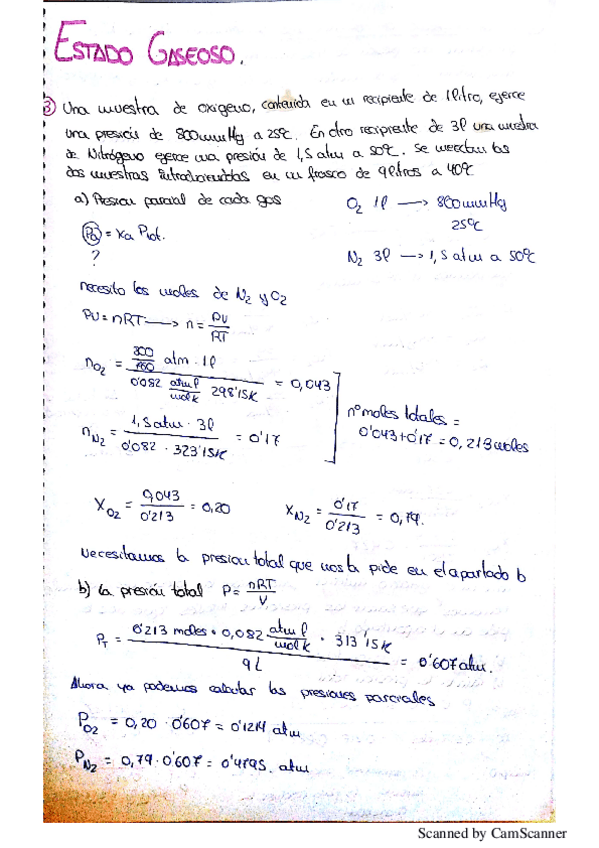 ESTADO GASEOSO.
③ Una muestra de oxigeno, contenida en un recipiente de 1 litro, ejerce
una presión de 800mmHg a 25ºC. En otro recipiente de 3l una muestra
de Nitrógeno ejerce una presión de 1,5 atm a 50ºC. Se mezclan las
dos muestras introduciendolas en un frasco de 9 litros a 40ºC
a) Presion parcial de cada gas
O2 1l → 800mmHg
25ºC
Pa = Xa Ptot.
?
N2 3l → 1,5 atm a 50ºC
necesito los moles de N2 y O2
PV = nRT → n = PV/RT
nO2 = 800/760 atm · 1l / 0'082 atm l/mol k 298'15K = 0,043
nN2 = 1,5 atm · 3l / 0'082 · 323'15K = 0'17
nº moles totales =
0'043+0'17 = 0,213 moles
XO2 = 0,043/0'213 = 0,20 XN2 = 0'17/0'213 = 0,79.
Necesitamos la presion total que nos la pide en el apartado b
b) la presión total P = nRT/V
PT = 0'213 moles · 0,082 atm l/mol k · 313'15K / 9L = 0'607 atm.
Ahora ya podemos calcular las presiones parciales
PO2 = 0,20 · 0'607 = 0'1214 atm
PN2 = 0,79 · 0'607 = 0'4795. atm
Scanned by CamScanner